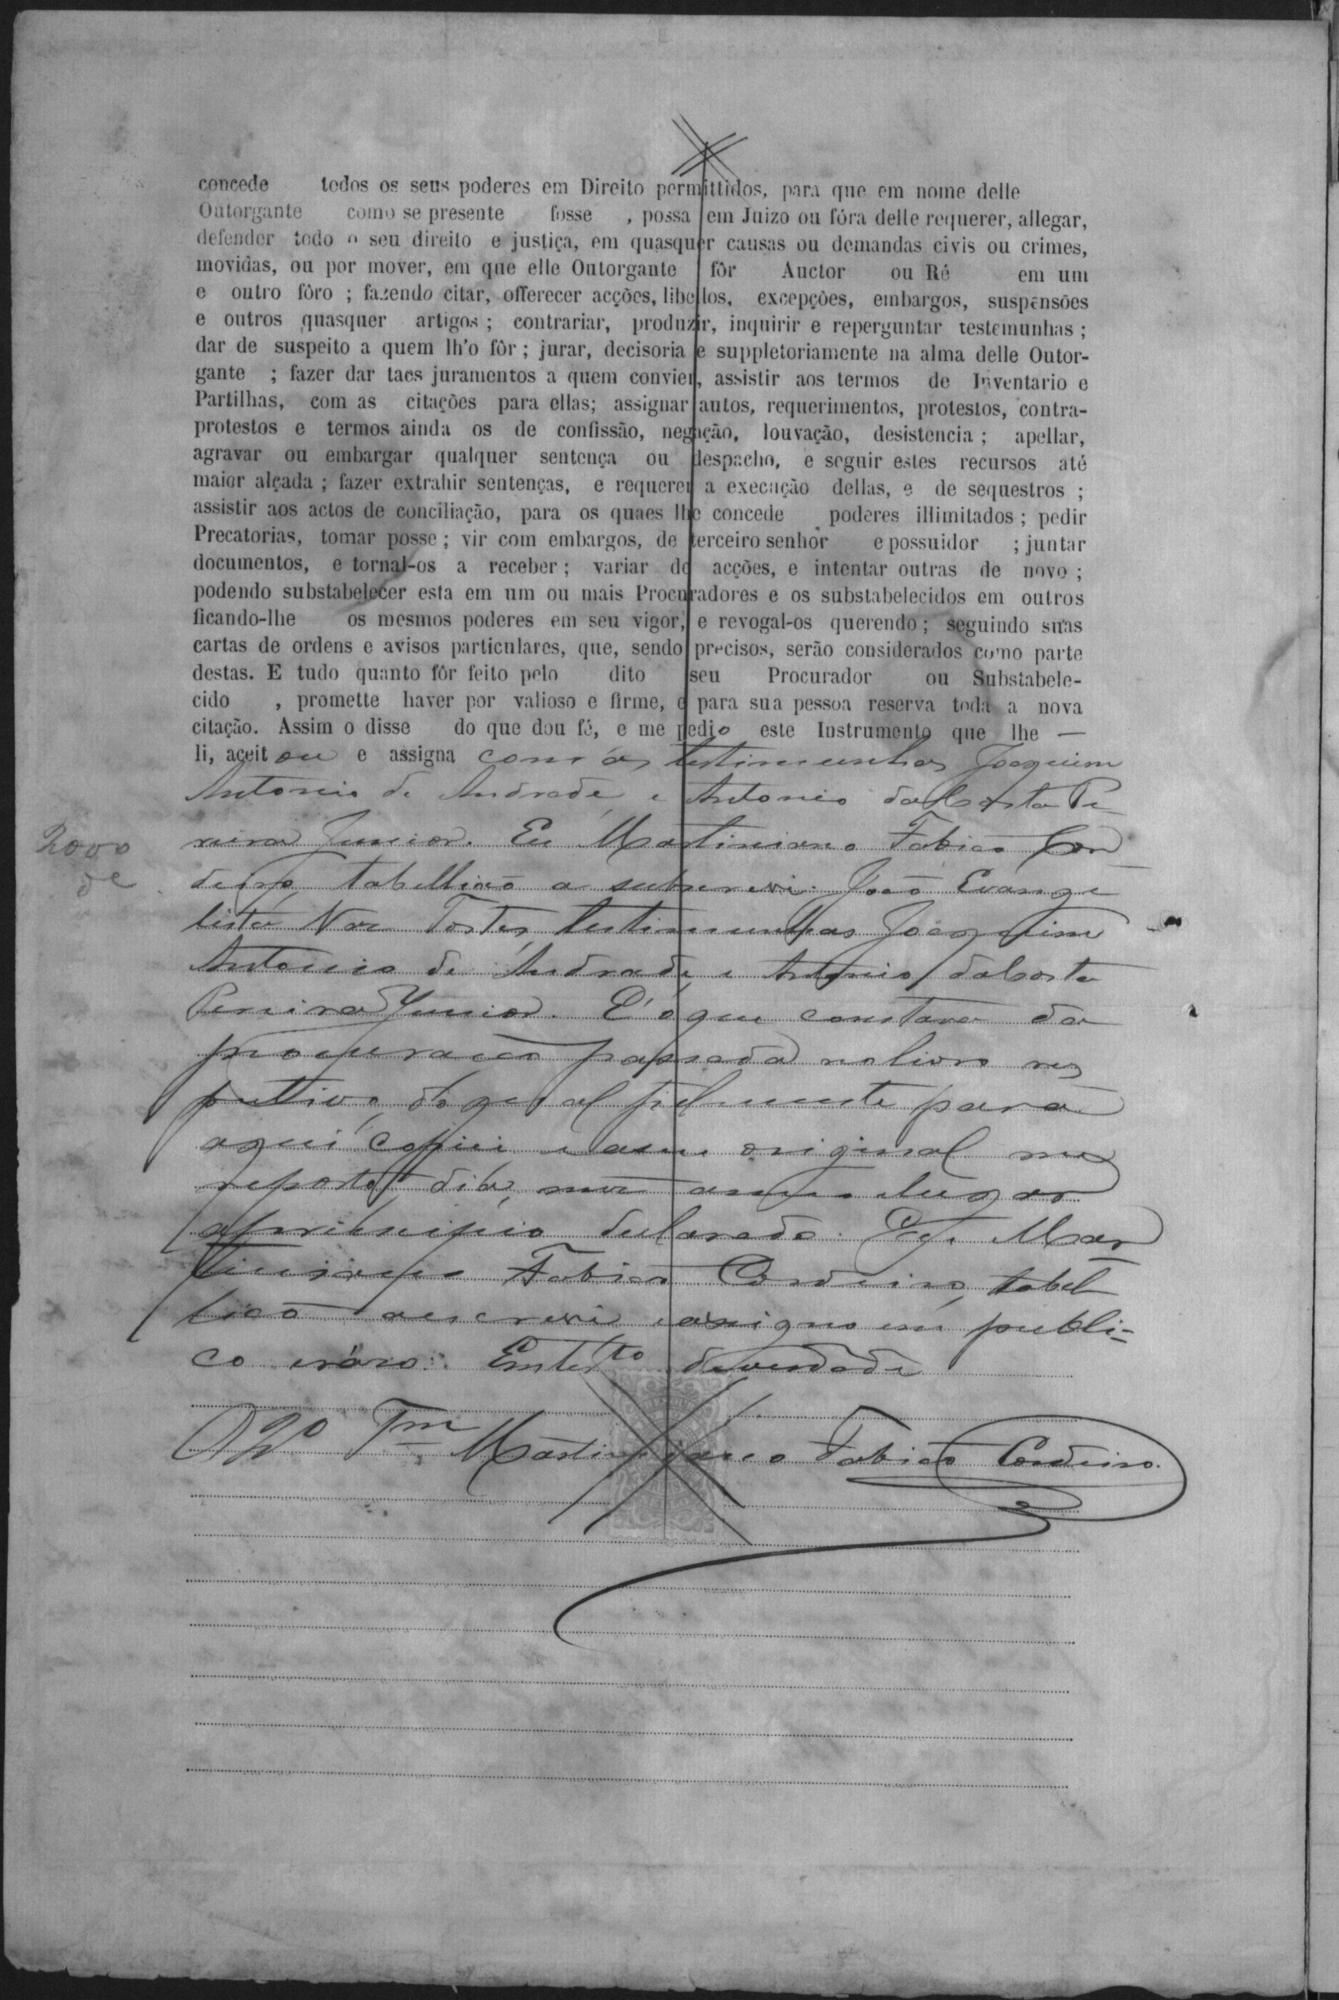 concede todos os seus poderes em Direito permittidos, para que em nome delle
Outorgante como se presente fosse , possa em Juizo ou fóra delle requerer, allegar,
defender todo o seu direito e justiça, em quasquer causas ou demandas civis ou crimes,
movidas, ou por mover, em que elle Outorgante fôr Auctor ou Ré em um
e outro fôro ; fazendo citar, offerecer acções, libellos, excepções, embargos, suspensões
e outros quasquer artigos ; contrariar, produzir, inquirir e reperguntar testemunhas ;
dar de suspeito a quem lh'o fôr ; jurar, decisoria e suppletoriamente na alma delle Outor-
gante ; fazer dar taes juramentos a quem convier, assistir aos termos de Inventario e
Partilhas, com as citações para ellas; assignar autos, requerimentos, protestos, contra-
protestos e termos ainda os de confissão, negação, louvação, desistencia ; apellar,
agravar ou embargar qualquer sentença ou despacho, e seguir estes recursos até
maior alçada ; fazer extrahir sentenças, e requerer a execução dellas, e de sequestros ;
assistir aos actos de conciliação, para os quaes lhe concede poderes illimitados ; pedir
Precatorias, tomar posse ; vir com embargos, de terceiro senhor e possuidor ; juntar
documentos, e tornal-os a receber ; variar de acções, e intentar outras de novo ;
podendo substabelecer esta em um ou mais Procuradores e os substabelecidos em outros
ficando-lhe os mesmos poderes em seu vigor, e revogal-os querendo ; seguindo suas
cartas de ordens e avisos particulares, que, sendo precisos, serão considerados como parte
destas. E tudo quanto fôr feito pelo dito seu Procurador ou Substabele-
cido , promette haver por valioso e firme, e para sua pessoa reserva toda a nova
citação. Assim o disse do que dou fé, e me pedio este Instrumento que lhe —
li, aceitou e assigna com as testimunhas Joaquim
Antonio de Andrade e Antonio da Costa Pe
reira Junior. Eu Martiniano Fabião Cor
2000
deiro, tabellião a subscrevi. João Evange
lista Testes testimunhas Joaquim
Antonio de Andrade, e Antonio da Costa
Pereira Junior. É o que constava da
procuração passada no livro res
pectivo, do qual fielmente para
aqui copiei e a seu original me
reporto, dia, mez anno e lugar
a principio declarado. Eu, Mar
tiniano Fabião Cordeiro, tabel
lião a escrevi e assigno em publi=
co e razo. Em testo de verdade
O 2o Tam Martiniano Fabião Cordeiro.